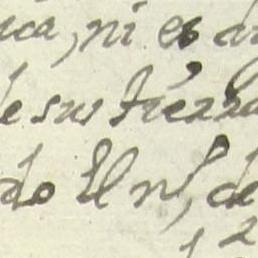 ca, ni es
de sus tierra
do El nͦ, de
12